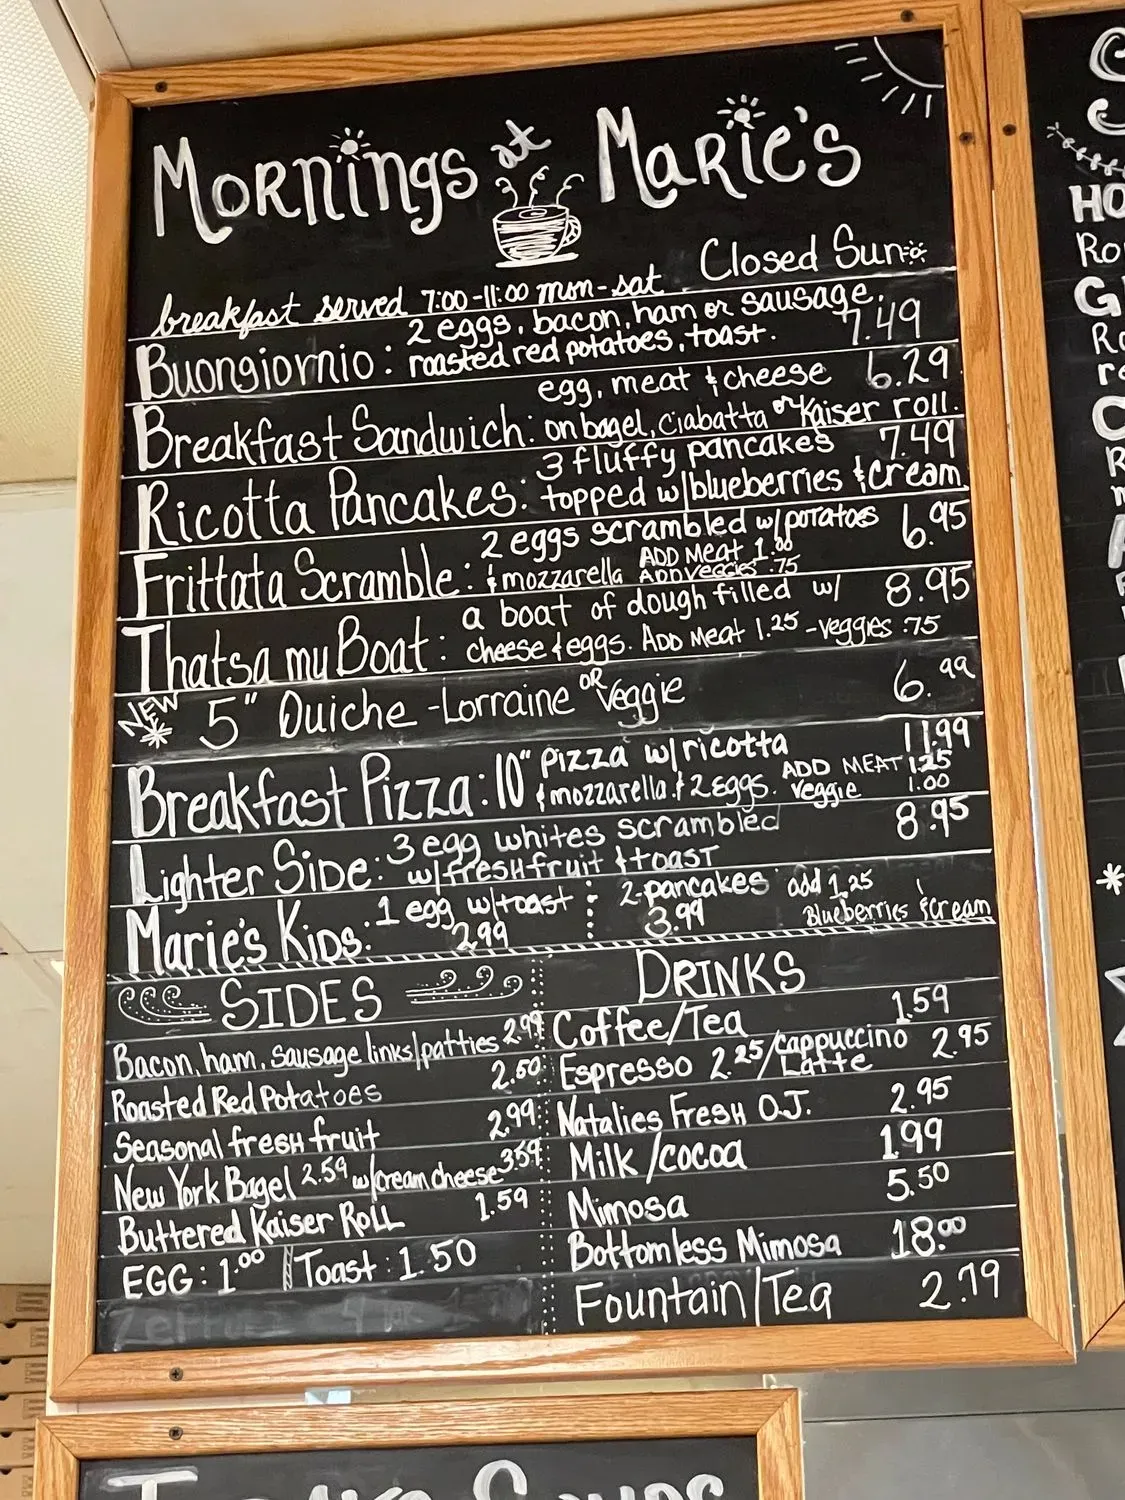 Mornings at Marie's
Closed Sun
breakfast served 7:00-11:00 mon-sat
2 eggs, bacon, ham or sausage,
Buongiornio: roasted red potatoes, toast. 7.49
egg, meat & cheese 6.29
Breakfast Sandwich: on bagel, Ciabatta or Kaiser roll.
3 fluffy pancakes 7.49
Ricotta Pancakes: topped w/blueberries & cream
2 eggs scrambled w/potatoes 6.95
Frittata Scramble: & mozzarella ADD Meat 1.00
ADD veggies .75
a boat of dough filled w/ 8.95
Thatsa my Boat: cheese & eggs. ADD Meat 1.25 - veggies .75
NEW * 5" Quiche - Lorraine OR Veggie 6.99
Breakfast Pizza: 10" pizza w/ricotta 11.99
& mozzarella & 2 eggs. ADD MEAT 1.25
veggie 1.00
3 egg whites scrambled 8.95
Lighter Side: w/fresh fruit & toast
Marie's Kids: 1 egg w/toast 2.99
2-pancakes 3.99 add 1.25
Blueberries & cream
SIDES
Bacon, ham, sausage links/patties 2.99
Roasted Red Potatoes 2.50
Seasonal fresh fruit 2.99
New York Bagel 2.59 w/cream cheese 3.59
Buttered Kaiser Roll 1.59
EGG: 1.00 Toast: 1.50
DRINKS
Coffee/Tea 1.59
Espresso 2.25/Cappuccino 2.95
Latte
Natalies Fresh O.J. 2.95
Milk/cocoa 1.99
Mimosa 5.50
Bottomless Mimosa 18.00
Fountain/Tea 2.79